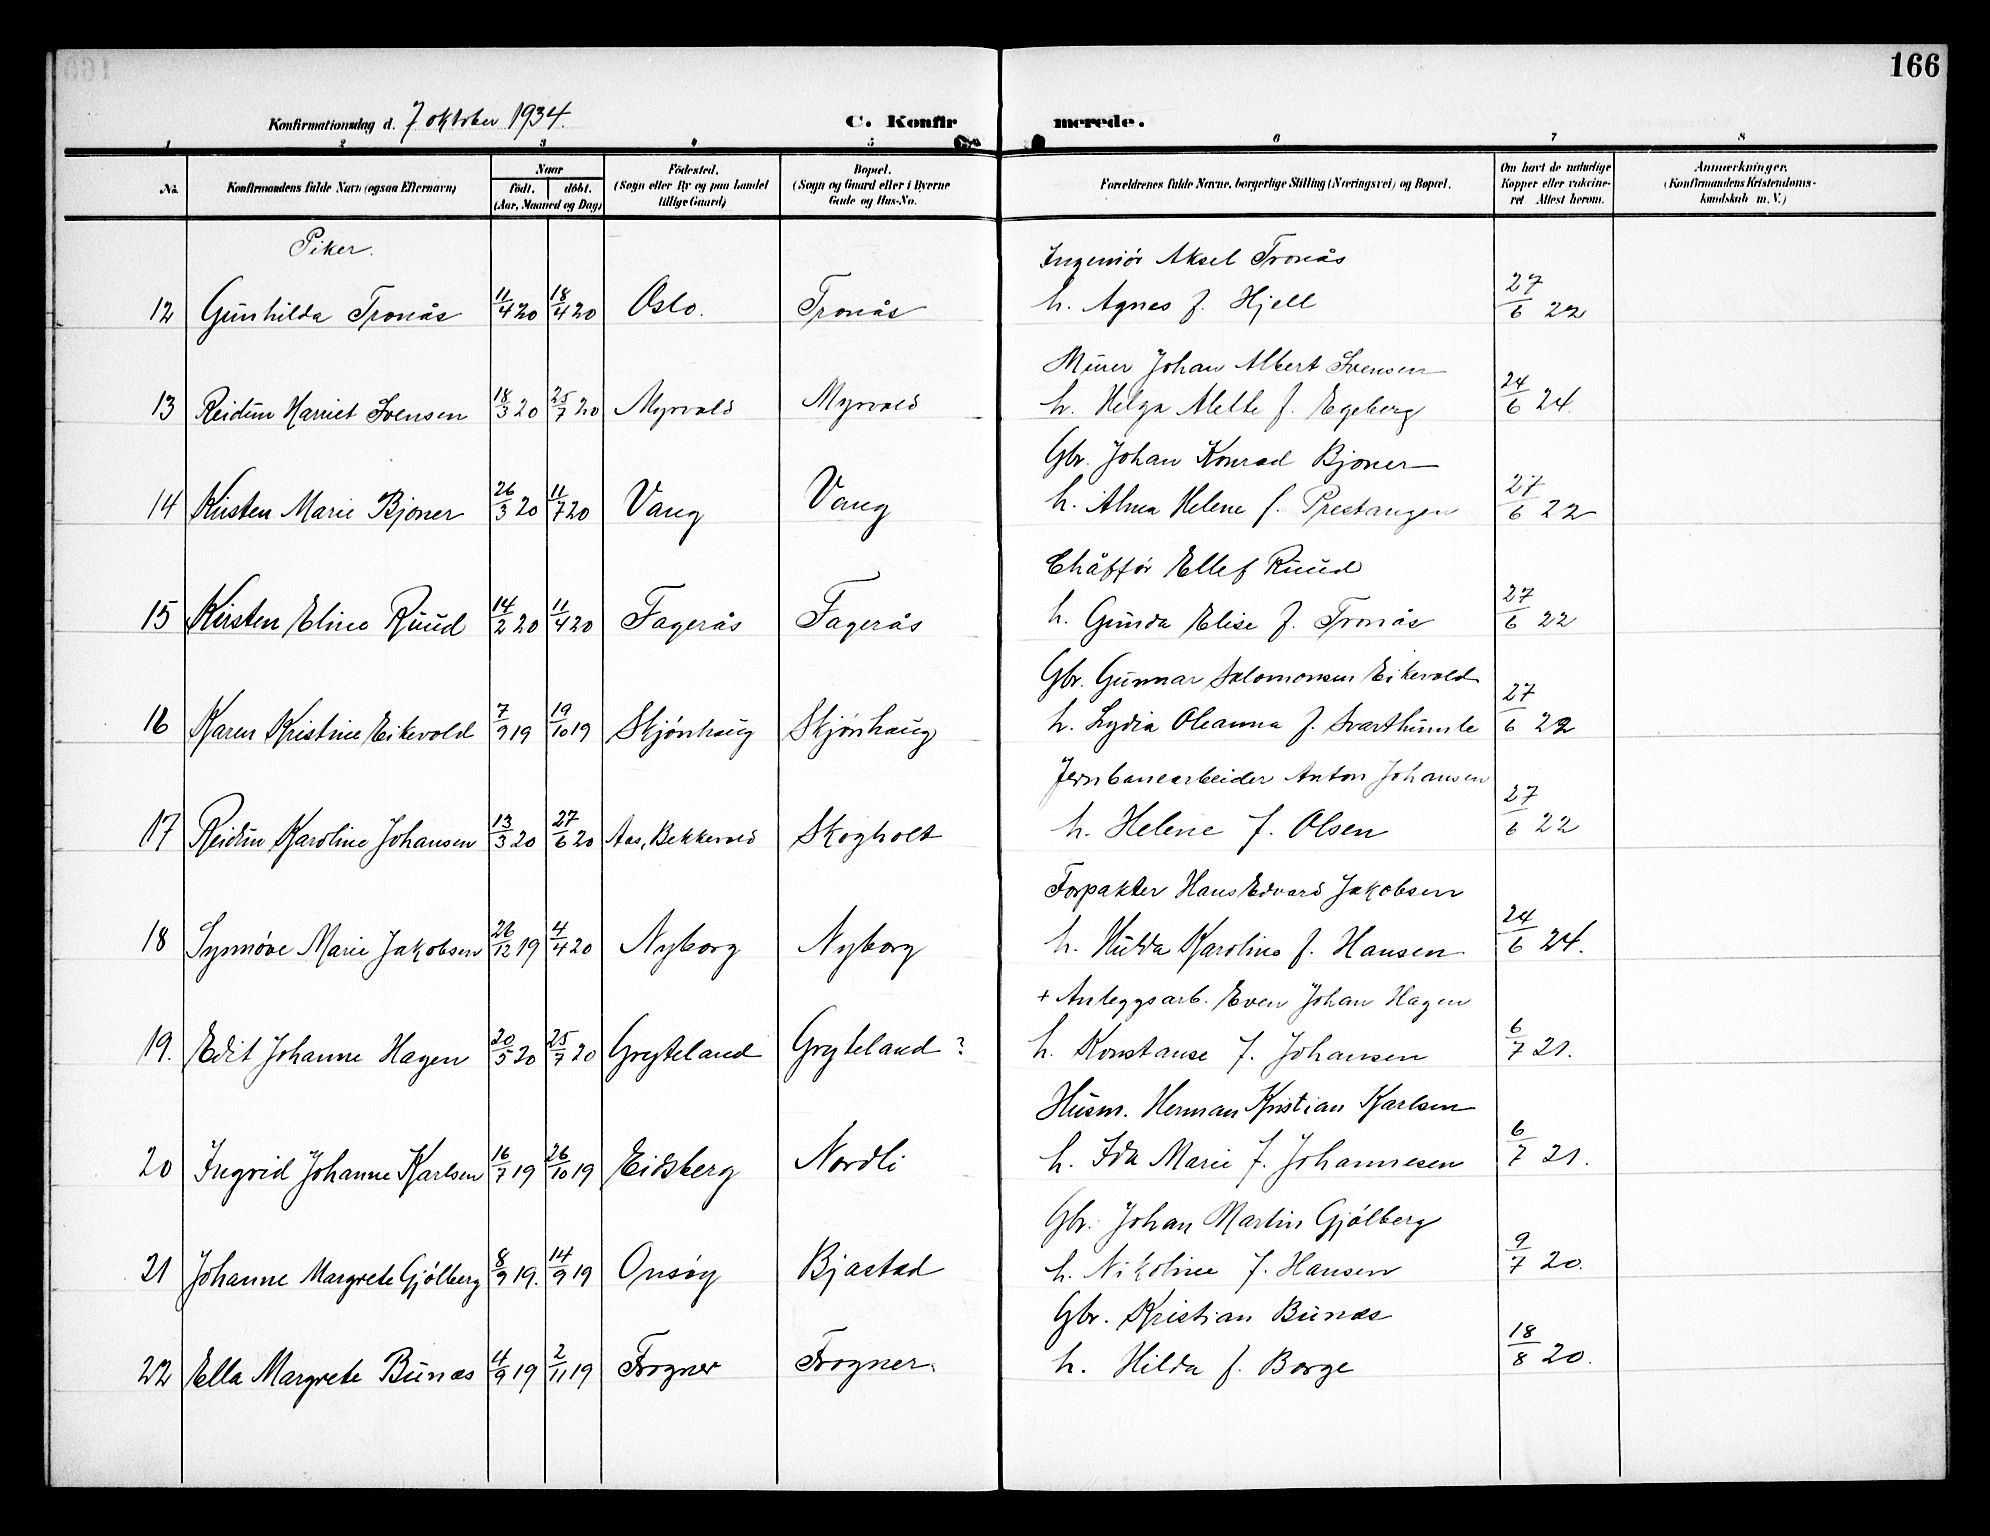 166
Konfirmationsdag d. 7 oktober 1934.
C. Konfirmerede.
1 2 3 4 5 6 7 8
No. Konfirmandens fulde Navn (ogsaa Efternavn) Naar født. døbt. (Aar, Maaned og Dag) Fødested. (Sogn eller By og paa Landet tillige Gaard) Bopæl. (Sogn og Gaard eller i Byerne Gade og Hus-No. Forældrenes fulde Navne, borgerlige Stilling (Næringsvei) og Bopæl. Om havt de naturlige Kopper eller vakcineret. Attest herom. Anmærkninger. (Konfirmandens Kristendomskundskab m. V.)
Piker.
Ingeniør Aksel Tronås
12 Gunhilda Tronås 11/4 20 18/4 20 Oslo. Tronås h. Agnes f. Hjell 27/6 22
Murer Johan Albert Svensen
13 Reidun Harriet Svensen 18/3 20 25/7 20 Myrvold Myrvold h. Helga Alette f. Egeberg 24/6 24.
Gbr. Johan Konrad Bjoner
14 Kirsten Marie Bjoner 26/3 20 11/7 20 Vang Vang h. Alma Helene f. Prestangen 27/6 22
Chåffør Ellef Ruud
15 Kirsten Eline Ruud 14/2 20 11/4 20 Fagerås Fagerås h. Gunda Elise f. Tronås 27/6 22
Gbr. Gunnar Salomonsen Eikevold
16 Karen Kristine Eikevold 7/9 19 19/10 19 Skjønhaug Skjønhaug h. Lydia Oleanna f. Svarthumle 27/6 22
Jernbanearbeider Anton Johansen
17 Reidun Karoline Johansen 13/3 20 27/6 20 Aas, Bekkevold Skogholt h. Helene f. Olsen 27/6 22
Forpakter Hans Edvard Jakobsen
18 Synnøve Marie Jakobsen 26/12 19 4/4 20 Nyborg Nyborg h. Hulda Karoline f. Hansen 24/6 24.
+ Anleggsarb. Even Johan Hagen
19. Edit Johanne Hagen 20/5 20 25/7 20 Gryteland Gryteland ? h. Konstanse f. Johansen 6/7 21.
Husm. Herman Kristian Karlsen
20 Ingrid Johanne Karlsen 16/7 19 26/10 19 Eidsberg Nordli h. Ida Marie f. Johannesen 6/7 21.
Gbr. Johan Martin Gjølberg
21 Johanne Margrete Gjølberg 8/9 19. 14/9 19 Onsøy Bjastad h. Nikoline f. Hansen 9/7 20.
Gbr. Kristian Bunæs
22 Ella Margrete Bunæs 4/9 19 2/11 19 Frogner Frogner. h. Hilda f. Borge 18/8 20.